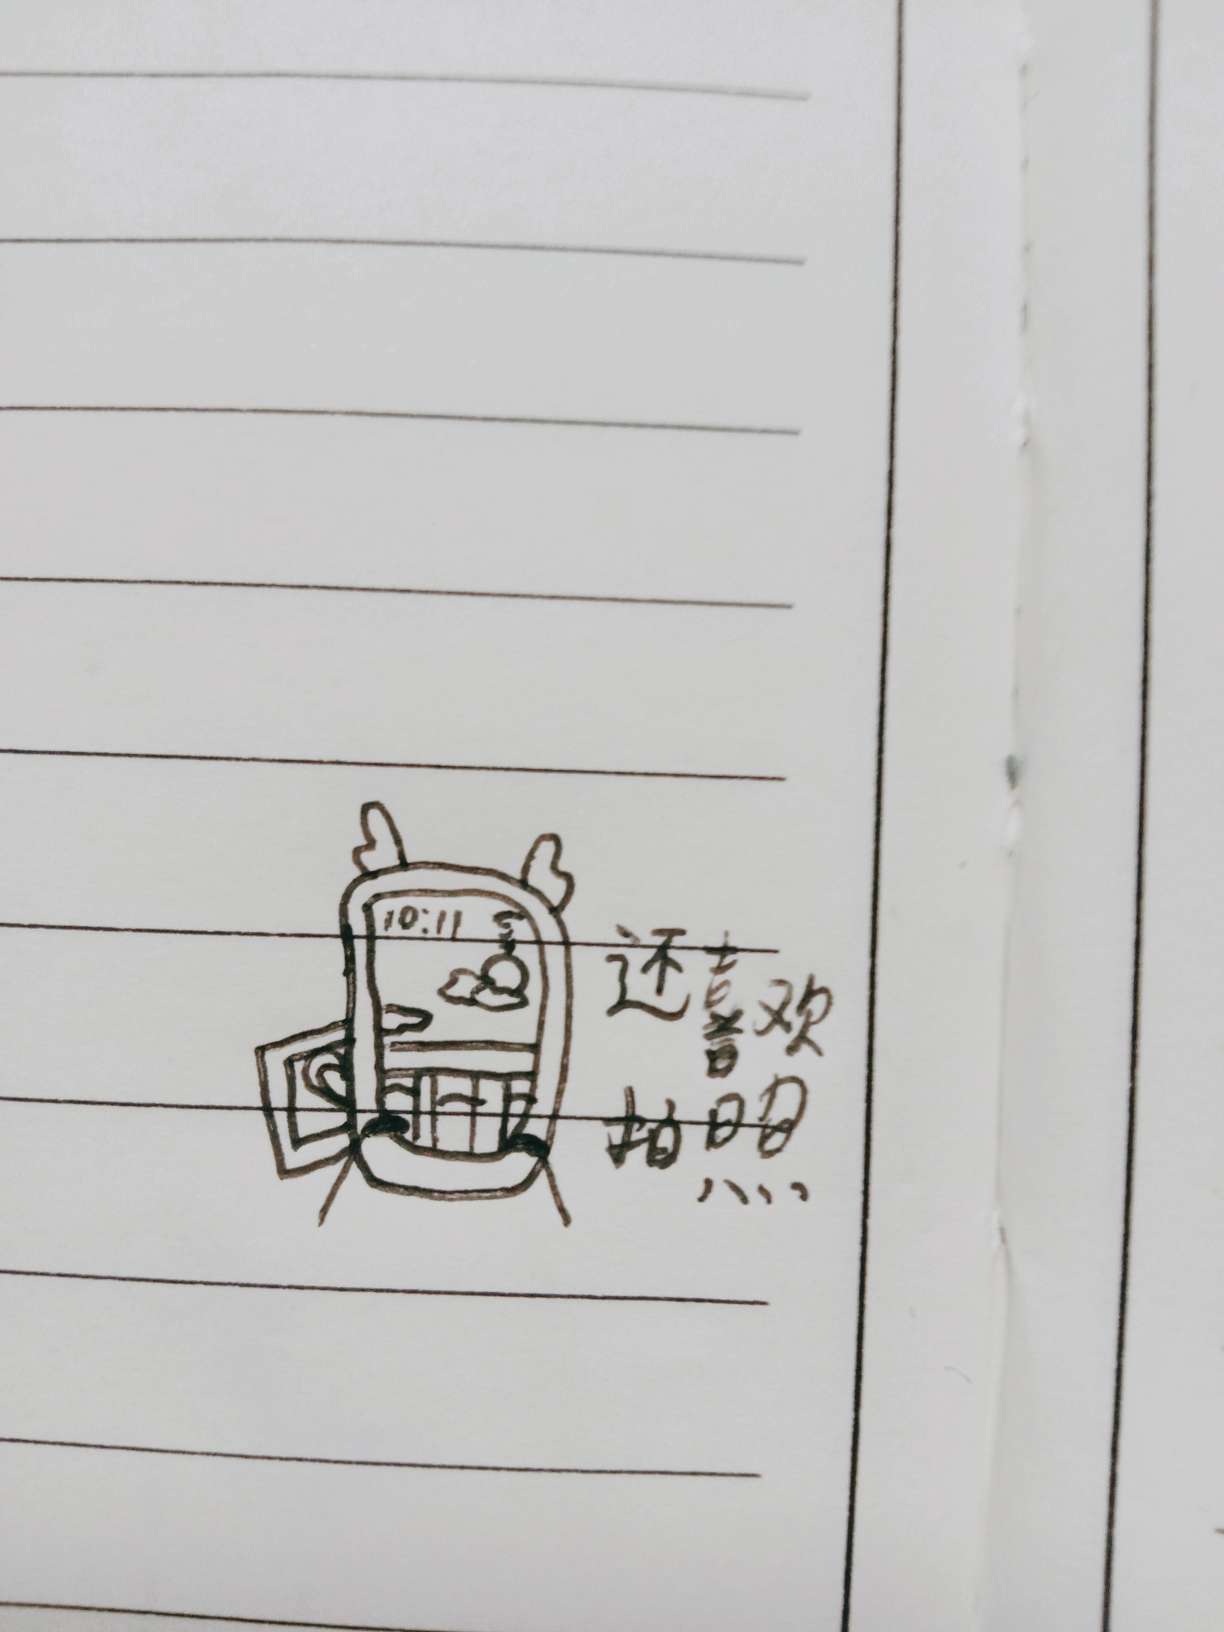 10:11
还喜欢
拍照